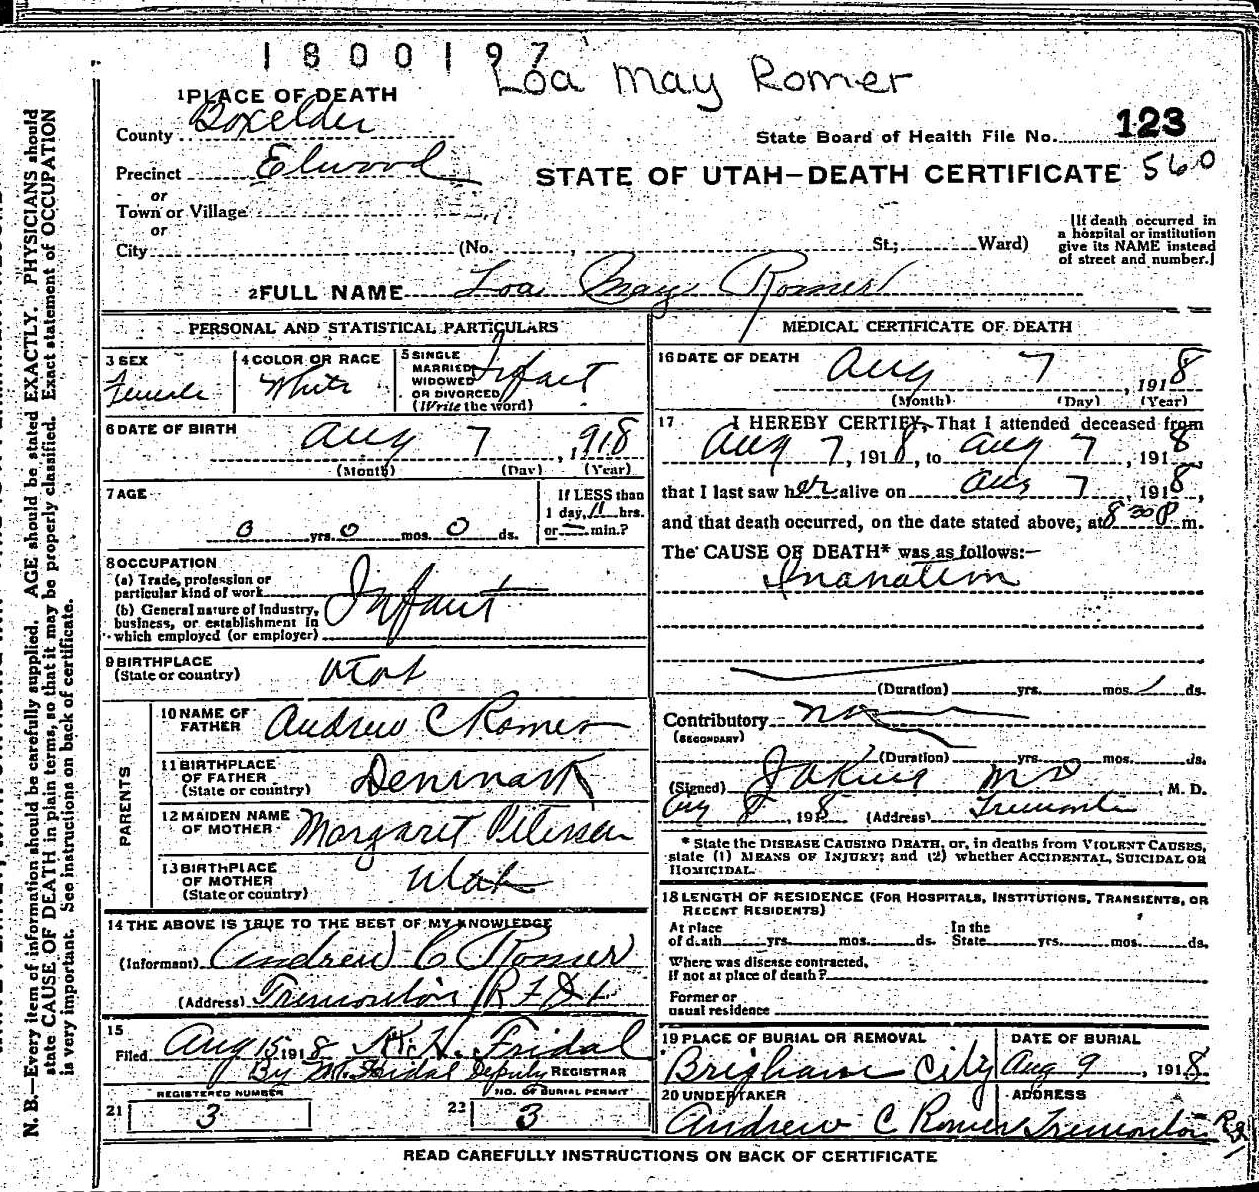 1800197
Loa May Romer
1 PLACE OF DEATH
County Boxelder
State Board of Health File No. 123
Precinct Elwood
STATE OF UTAH—DEATH CERTIFICATE 560
or
Town or Village
or
City (No. , St.; Ward)
[If death occurred in
a hospital or institution
give its NAME instead
of street and number.]
2 FULL NAME Loa May Romer
PERSONAL AND STATISTICAL PARTICULARS
3 SEX
Female
4 COLOR OR RACE
White
5 SINGLE
MARRIED
WIDOWED
OR DIVORCED
(Write the word)
Infant
6 DATE OF BIRTH
Aug 7, 1918
(Month) (Day) (Year)
7 AGE
0 yrs. 0 mos. 0 ds.
If LESS than
1 day, 11 hrs.
or — min.?
8 OCCUPATION
(a) Trade, profession or
particular kind of work
(b) General nature of industry,
business, or establishment in
which employed (or employer)
Infant
9 BIRTHPLACE
(State or country)
Utah
PARENTS
10 NAME OF
FATHER
Andrew C Romer
11 BIRTHPLACE
OF FATHER
(State or country)
Denmark
12 MAIDEN NAME
OF MOTHER
Margaret Petersen
13 BIRTHPLACE
OF MOTHER
(State or country)
Utah
14 THE ABOVE IS TRUE TO THE BEST OF MY KNOWLEDGE
(Informant) Andrew C Romer
(Address) Tremonton R F D
15
Filed Aug 15 1918 Fridal
By M. Fridal Deputy REGISTRAR
REGISTERED NUMBER
21 3
NO. OF BURIAL PERMIT
22 3
MEDICAL CERTIFICATE OF DEATH
16 DATE OF DEATH
Aug 7, 1918
(Month) (Day) (Year)
17 I HEREBY CERTIFY, That I attended deceased from
Aug 7, 1918, to Aug 7, 1918
that I last saw her alive on Aug 7, 1918,
and that death occurred, on the date stated above, at 8 30 P m.
The CAUSE OF DEATH* was as follows:—
Inanation
(Duration) yrs. mos. 1 ds.
Contributory no
(SECONDARY)
(Duration) yrs. mos. ds.
(Signed) MD, M. D.
Aug 8, 1918 (Address) Tremonton
* State the DISEASE CAUSING DEATH, or, in deaths from VIOLENT CAUSES,
state (1) MEANS OF INJURY; and (2) whether ACCIDENTAL, SUICIDAL OR
HOMICIDAL.
18 LENGTH OF RESIDENCE (FOR HOSPITALS, INSTITUTIONS, TRANSIENTS, OR
RECENT RESIDENTS)
At place In the
of death yrs. mos. ds. State yrs. mos. ds.
Where was disease contracted,
if not at place of death?
Former or
usual residence
19 PLACE OF BURIAL OR REMOVAL
Brigham City
DATE OF BURIAL
Aug 9, 1918
20 UNDERTAKER
Andrew C Romer
ADDRESS
Tremonton
READ CAREFULLY INSTRUCTIONS ON BACK OF CERTIFICATE
N. B.—Every item of information should be carefully supplied. AGE should be stated EXACTLY. PHYSICIANS should
state CAUSE OF DEATH in plain terms, so that it may be properly classified. Exact statement of OCCUPATION
is very important. See instructions on back of certificate.